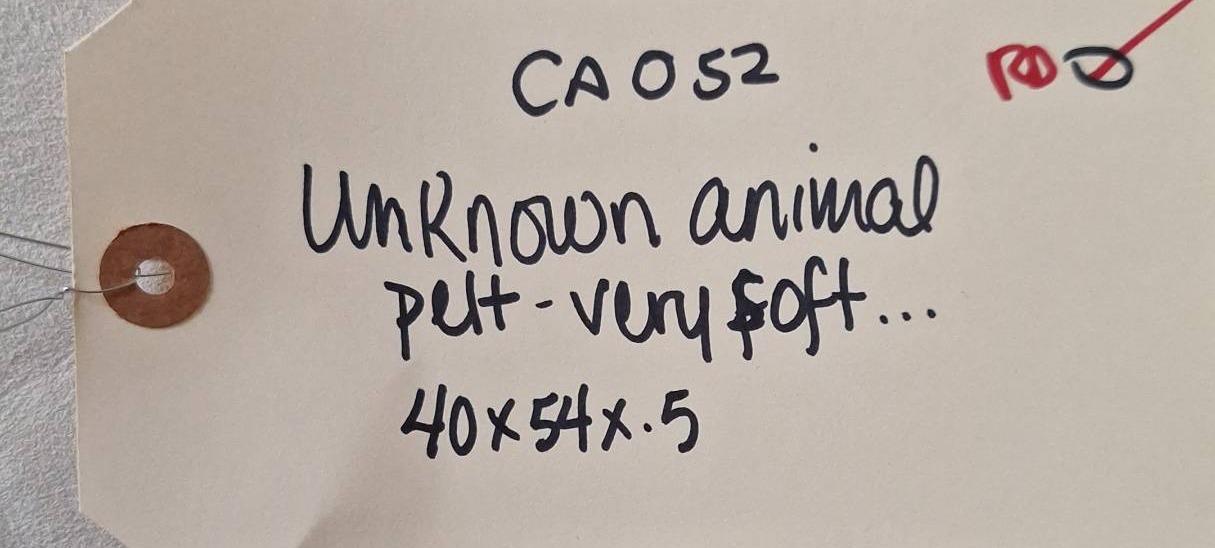 CA052
Unknown animal
pelt - very soft...
40x54x.5